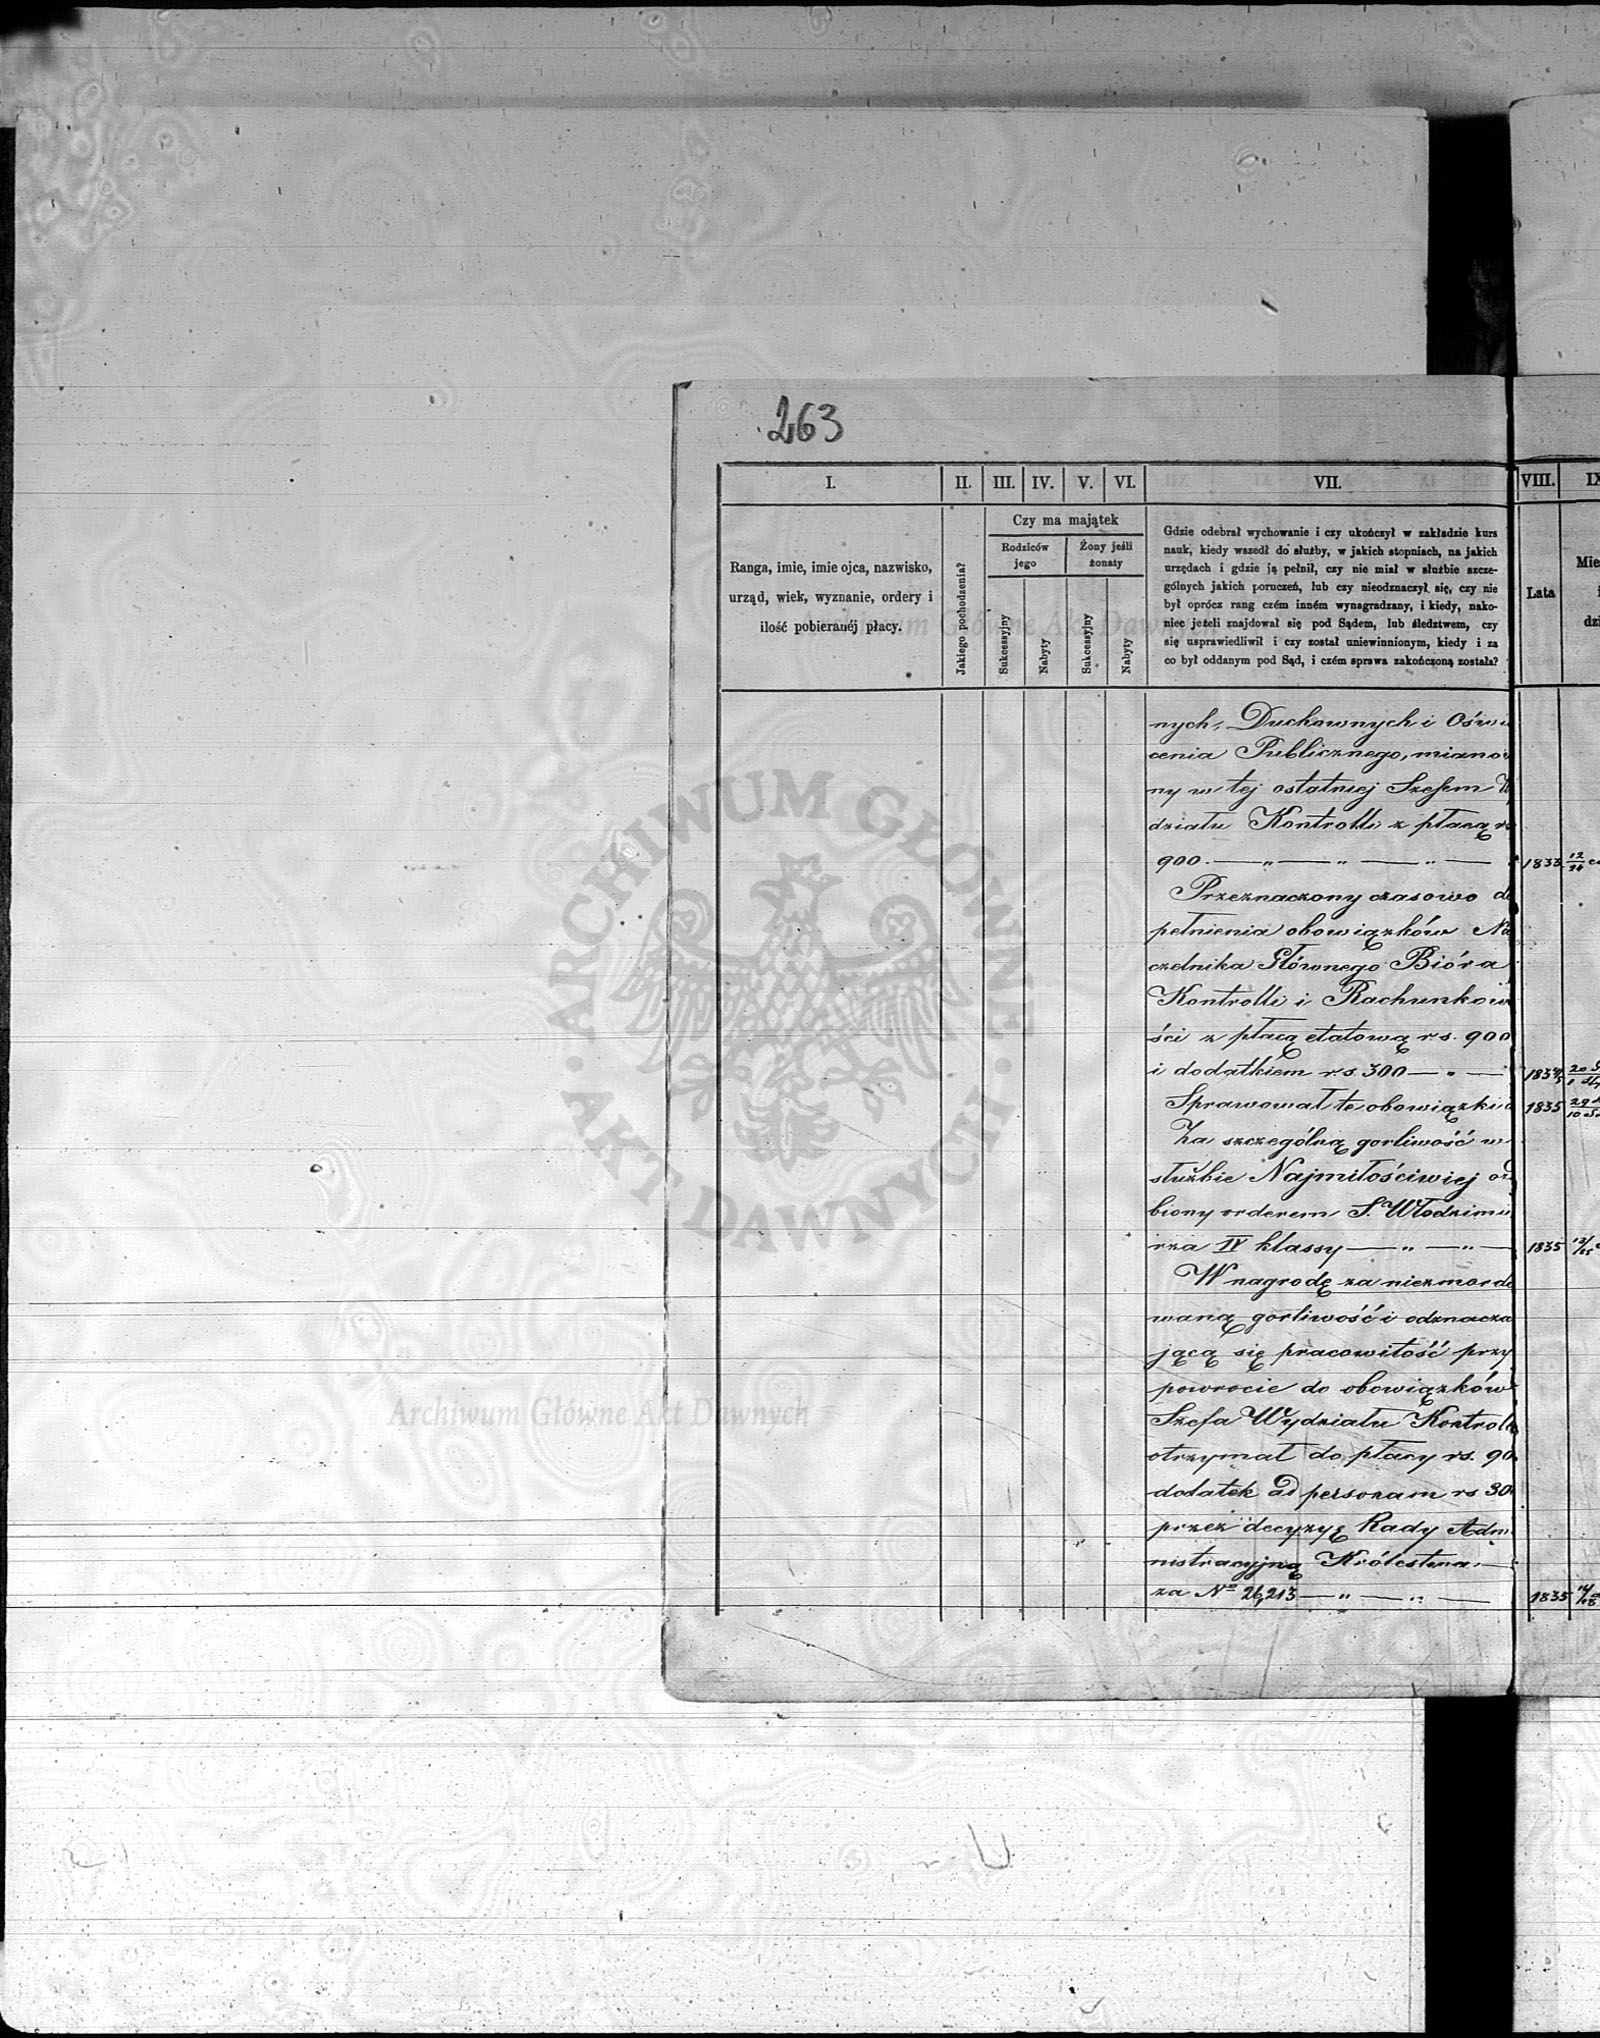 263
I. II. III. IV. V. VI. VII. VIII. IX
Ranga, imie, imie ojca, nazwisko,
urząd, wiek, wyznanie, ordery i
ilość pobieranéj płacy.
Jakiego pochodzenia?
Czy ma majątek
Rodziców
jego
Żony jeśli
żonaty
Sukcessyjny
Nabyty
Sukcessyjny
Nabyty
Gdzie odebrał wychowanie i czy ukończył w zakładzie kurs
nauk, kiedy wszedł do służby, w jakich stopniach, na jakich
urzędach i gdzie ją pełnił, czy nie miał w służbie szcze-
gólnych jakich poruczeń, lub czy nieodznaczył się, czy nie
był oprócz rang czém inném wynagradzany, i kiedy, nako-
niec jeżeli znajdował się pod Sądem, lub śledztwem, czy
się usprawiedliwił i czy został uniewinnionym, kiedy i za
co był oddanym pod Sąd, i czém sprawa zakończoną została?
Lata
Mie
dzi
nych, Duchownych i Oświ
cenia Publicznego, miano
ny w tej ostatniej Szefem W
działu Kontrolli z płacą rs
900. — „ — „ — „ — 1833 12/24
Przeznaczony czasowo do
pełnienia obowiązków Na
czelnika Głównego Bióra
Kontrolli i Rachunkow
ści z płacą etatową rs. 900
i dodatkiem rs. 300 — „ — 1834/5 20/1
Sprawował te obowiązki d 1835 29/10
Za szczególną gorliwość w
służbie Najmiłościwiej oz
biony orderem S. Włodzimi
rza IV klassy — „ — „ — 1835 13/25
W nagrodę za niezmordo
waną gorliwość i odznacza
jącą się pracowitość przy
powrocie do obowiązków
Szefa Wydziału Kontroll
otrzymał do płacy rs. 90
dodatek ad personam rs 30
przez decyzyę Rady Adm
nistracyjną Królestwa —
za No 26,213 — „ — „ — 1835
ARCHIWUM GŁÓWNE
AKT DAWNYCH
Archiwum Główne Akt Dawnych
Archiwum Główne Akt Dawnych